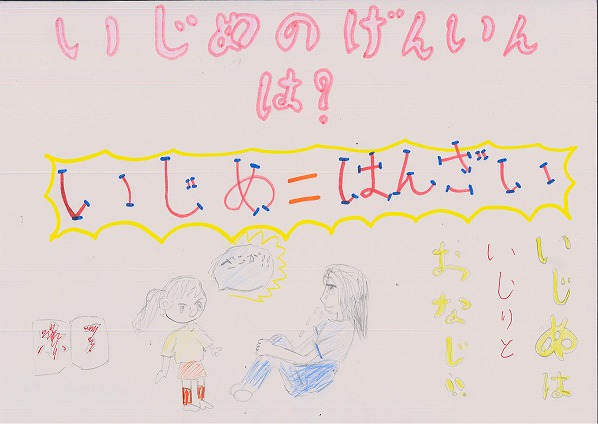 いじめのげんいん
は?
いじめ=はんざい
ざこが!!
いじめは
いじりと
おなじ!!